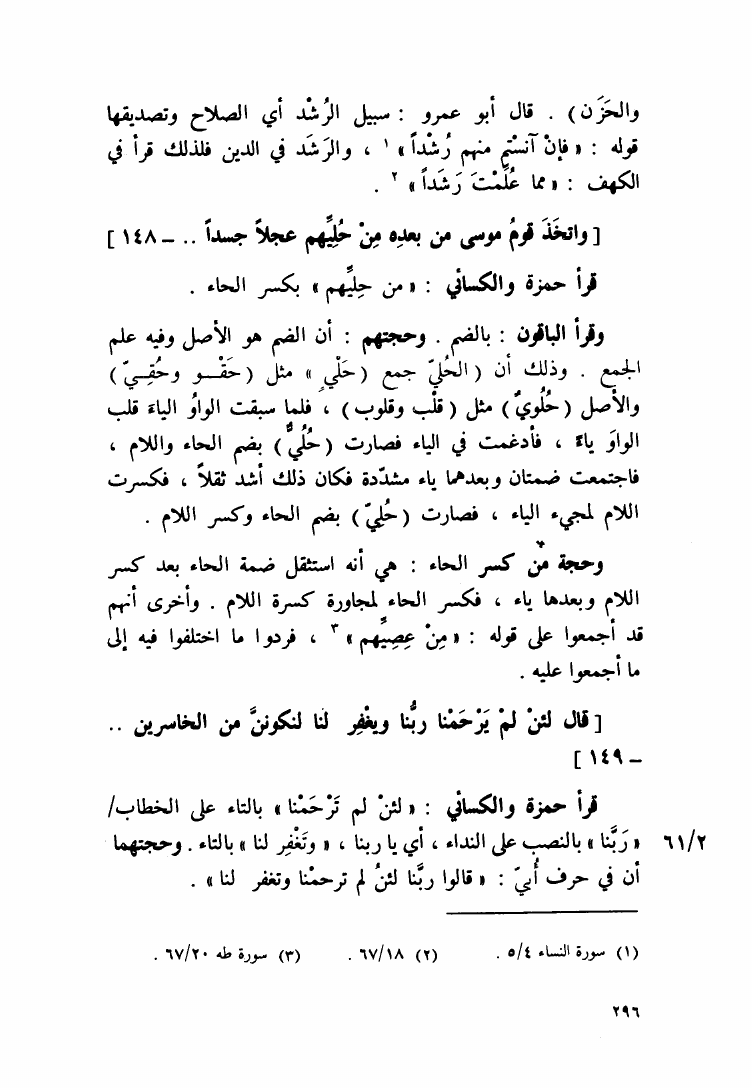 والحَزَن) . قال أبو عمرو : سبيل الرُشْد أي الصلاح وتصديقها
قوله : « فإنْ آنسْتم منهم رُشْداً » ١ ، والرَشَد في الدين فلذلك قرأ في
الكهف : « مما عُلِّمْتَ رَشَداً » ٢ .
[ واتخَذَ قومُ موسى من بعدِه مِنْ حُلِيِّهم عجلاً جسداً .. ــ ١٤٨ ]
قرأ حمزة والكسائي : « من حِلِيِّهم » بكسر الحاء .
وقرأ الباقون : بالضم . وحجتهم : أن الضم هو الأصل وفيه علم
الجمع . وذلك أن ( الحُليّ جمع ( حَلْيٍ ) » مثل ( حَقْـــو وحُقِـــيّ )
والأصل ( حُلُويٌ ) مثل ( قلْب وقلوب ) ، فلما سبقت الواوُ الياءَ قلب
الواوَ ياءً ، فأدغمت في الياء فصارت ( حُلُيٌّ ) بضم الحاء واللام ،
فاجتمعت ضمتان وبعدهما ياء مشدّدة فكان ذلك أشد ثقلاً ، فكسرت
اللام لمجيء الياء ، فصارت ( حُلِيّ ) بضم الحاء وكسر اللام .
وحجة مَن كسر الحاء : هي أنه استثقل ضمة الحاء بعد كسر
اللام وبعدها ياء ، فكسر الحاء لمجاورة كسرة اللام . وأخرى أنهم
قد أجمعوا على قوله : « مِنْ عِصِيِّهم » ٣ ، فردوا ما اختلفوا فيه إلى
ما أجمعوا عليه .
[ قال لئنْ لمْ يَرْحَمْنا ربُّنا ويغْفِر لنا لنكوننَّ من الخاسرين ..
ــ ١٤٩ ]
قرأ حمزة والكسائي : « لئنْ لم تَرْحَمْنا » بالتاء على الخطاب/
« رَبَّنا » بالنصب على النداء ، أي يا ربنا ، « وتَغْفِر لنا » بالتاء . وحجتهما ٦١/٢
أن في حرف أُبيّ : « قالوا ربَّنا لئنْ لم ترحمْنا وتغفر لنا » .
(١) سورة النساء ٥/٤ . (٢) ٦٧/١٨ . (٣) سورة طه ٦٧/٢٠ .
٢٩٦